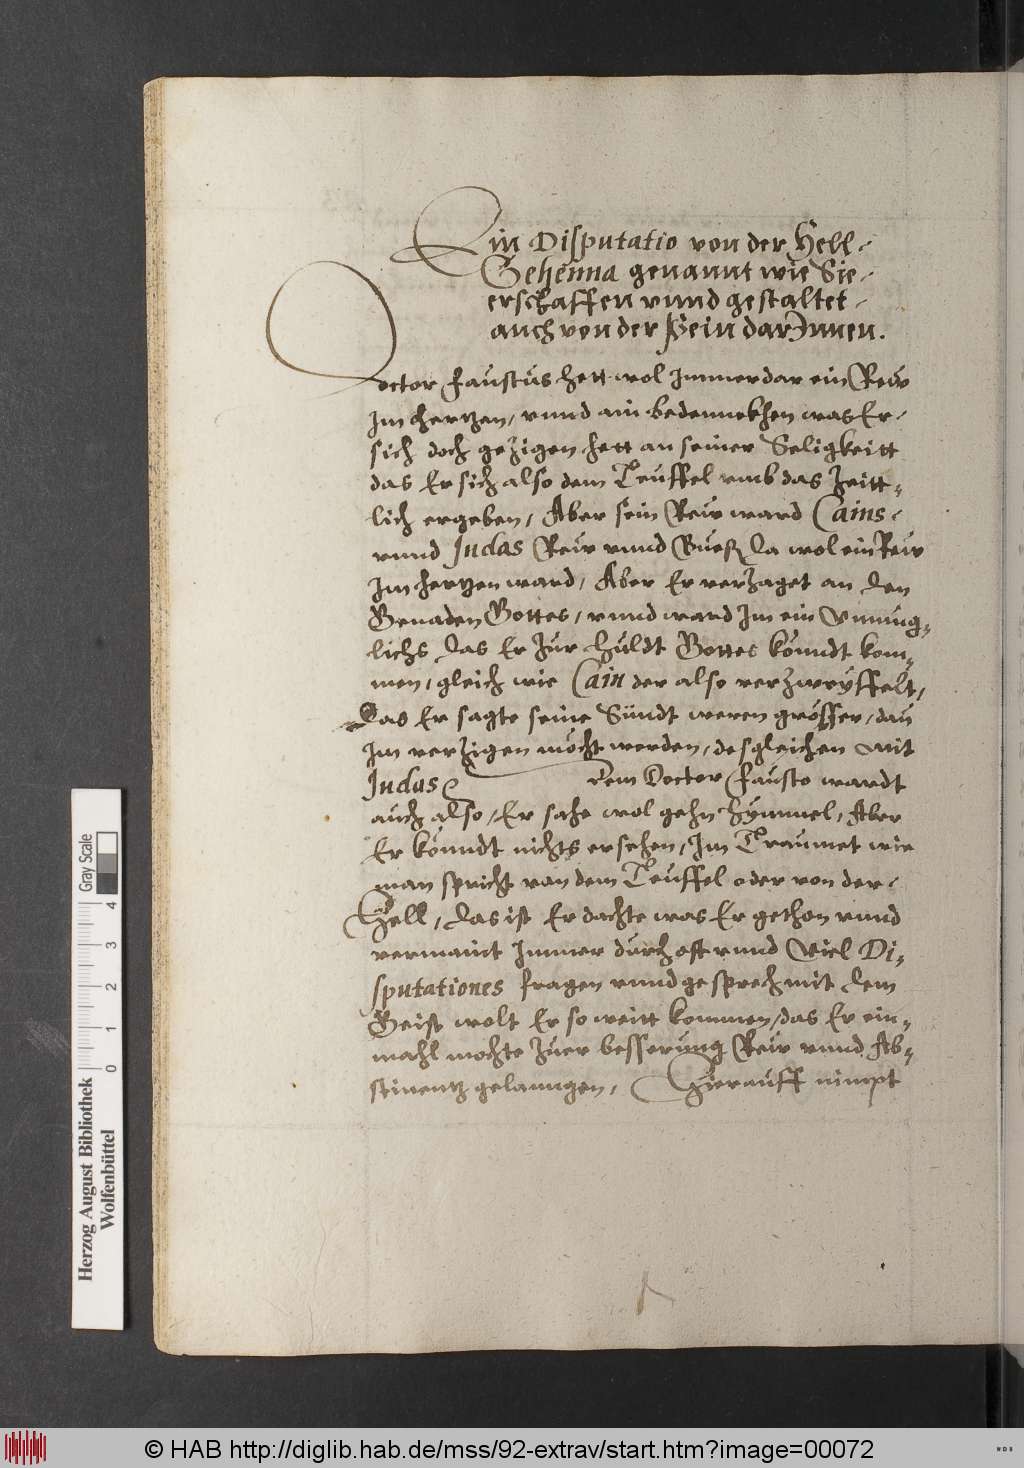 Ein Disputatio von der Hell-
Gehenna genannt wie Sie-
erschaffen vnnd gestaltet-
auch von der Pein darInnen.
Doctor Faustus hett wol Immerdar ein Rew
Im hertzen, vnnd ain bedennckhen was Er-
sich doch gezigen hett an seiner Seligkeitt
das Er sich also dem Teuffel vmb das Zeitt-
lich ergeben, Aber sein Rew ward Cains-
vnnd Judas Rew vnnd Bueß da wol ein Rew
Im hertzen ward, Aber Er verzaget an den
Genaden Gottes, vnnd ward Im ein Vnmüg-
lichs das Er zur huldt Gottes könndt kom-
men, gleich wie Cain der also verzweyffelt,
das Er sagte seine Sündt weren grösser, dan
Im verzigen möcht werden, desgleichen mit
Judas dem Doctor Fausto wardt
auch also, Er sahe wol gehn hymmel, Aber
Er könndt nichts ersehen, Im Traumet wie
man spricht van dem Teuffel oder von der-
Hell, das ist Er dachte was Er gethon vnnd
vermaint Immer durch oft vnnd Viel Di-
sputationes fragen vnnd gesprech mit dem
Geist wolt Er so weitt kommen, das Er ein-
mahl mochte zuer besserung Rew vnnd Ab-
stinentz gelanngen, Hierauff nimpt
Herzog August Bibliothek
Wolfenbüttel
0 1 2 3 4
Gray Scale
© HAB http://diglib.hab.de/mss/92-extrav/start.htm?image=00072